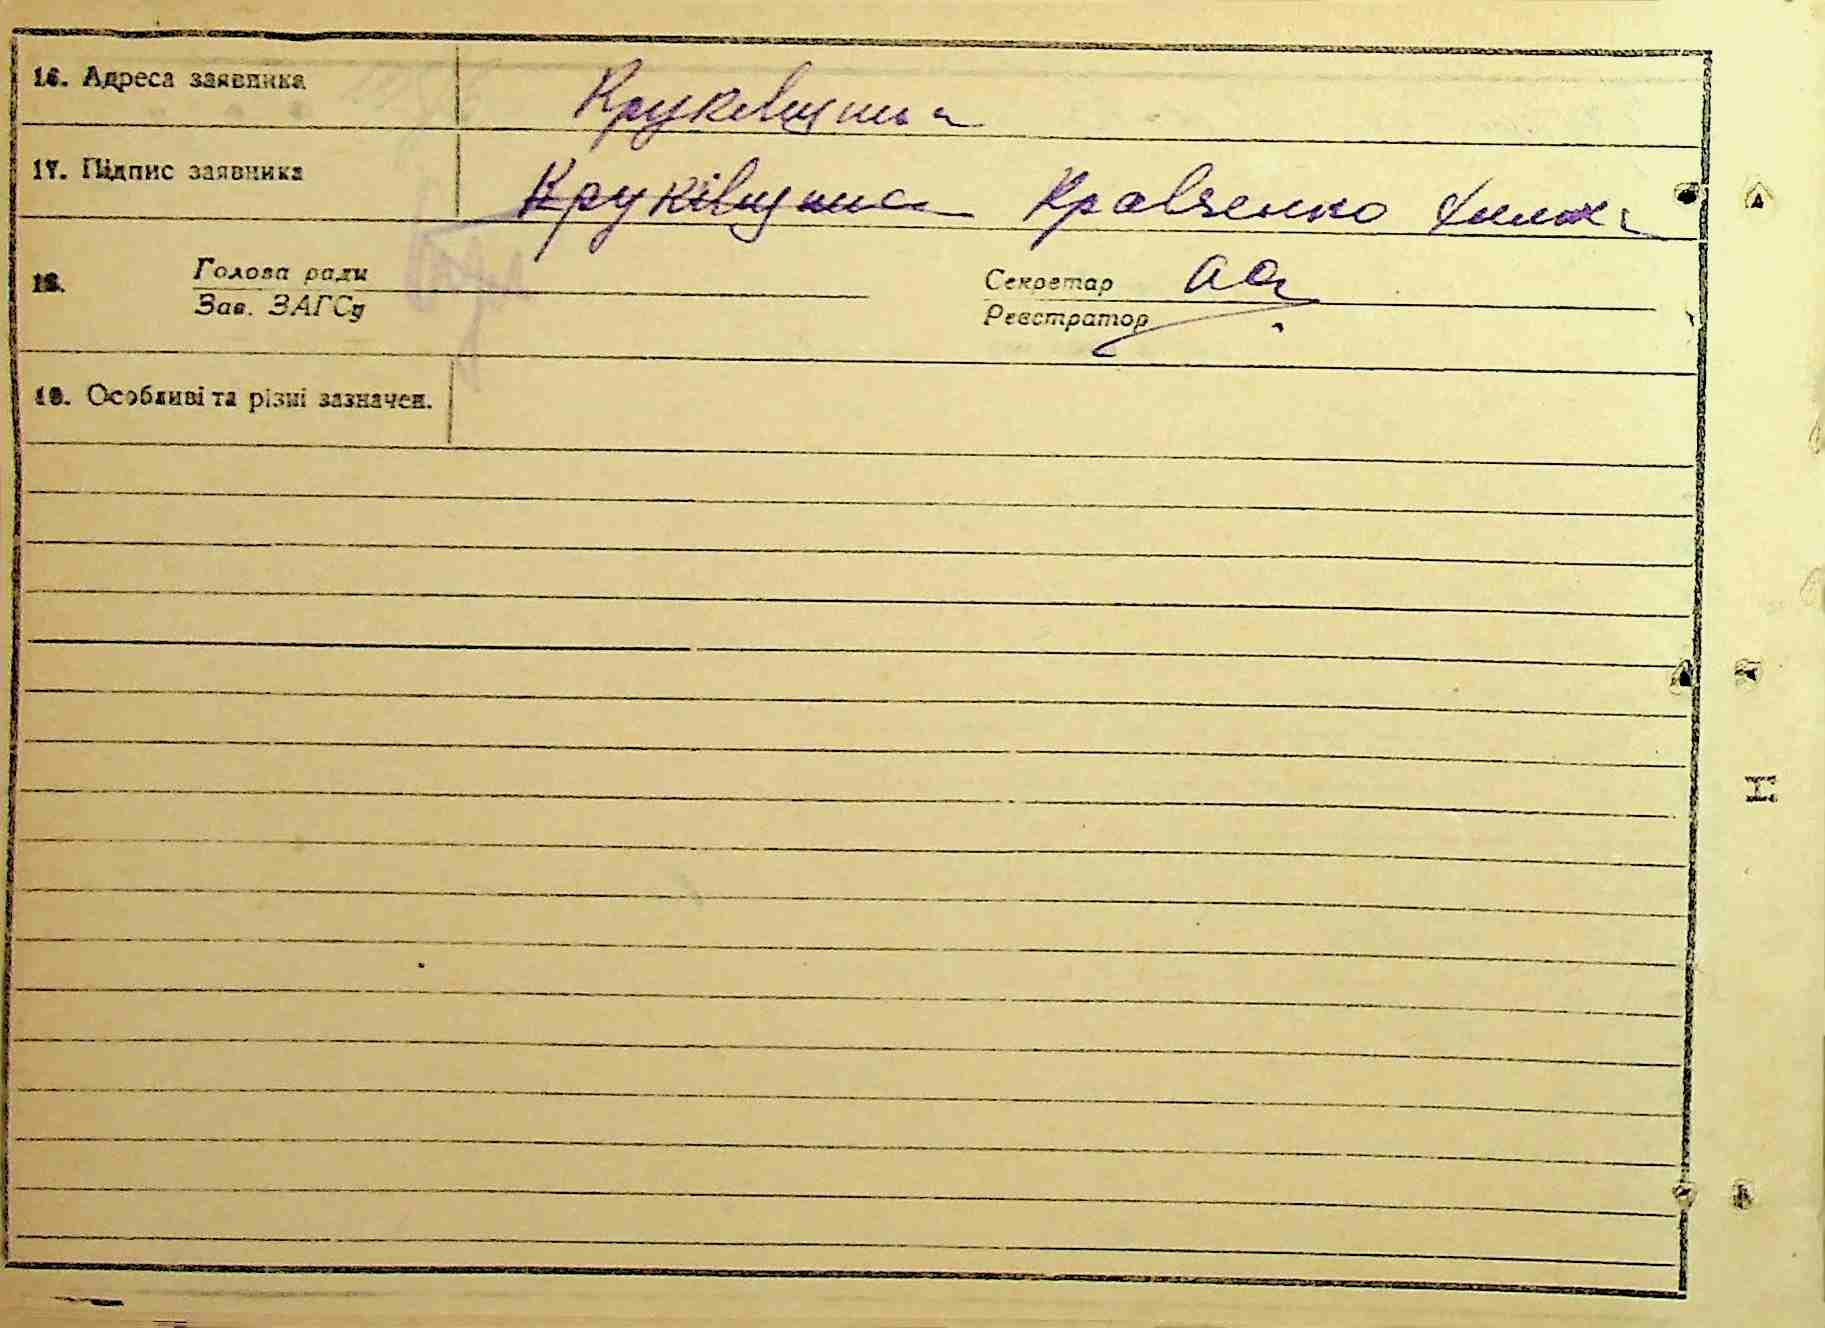 16. Адреса заявника Круківщина
17. Підпис заявника Круківщина Кравченко
18. Голова ради Секретар
Зав. ЗАГСу Реєстратор
19. Особливі та різні зазначен.